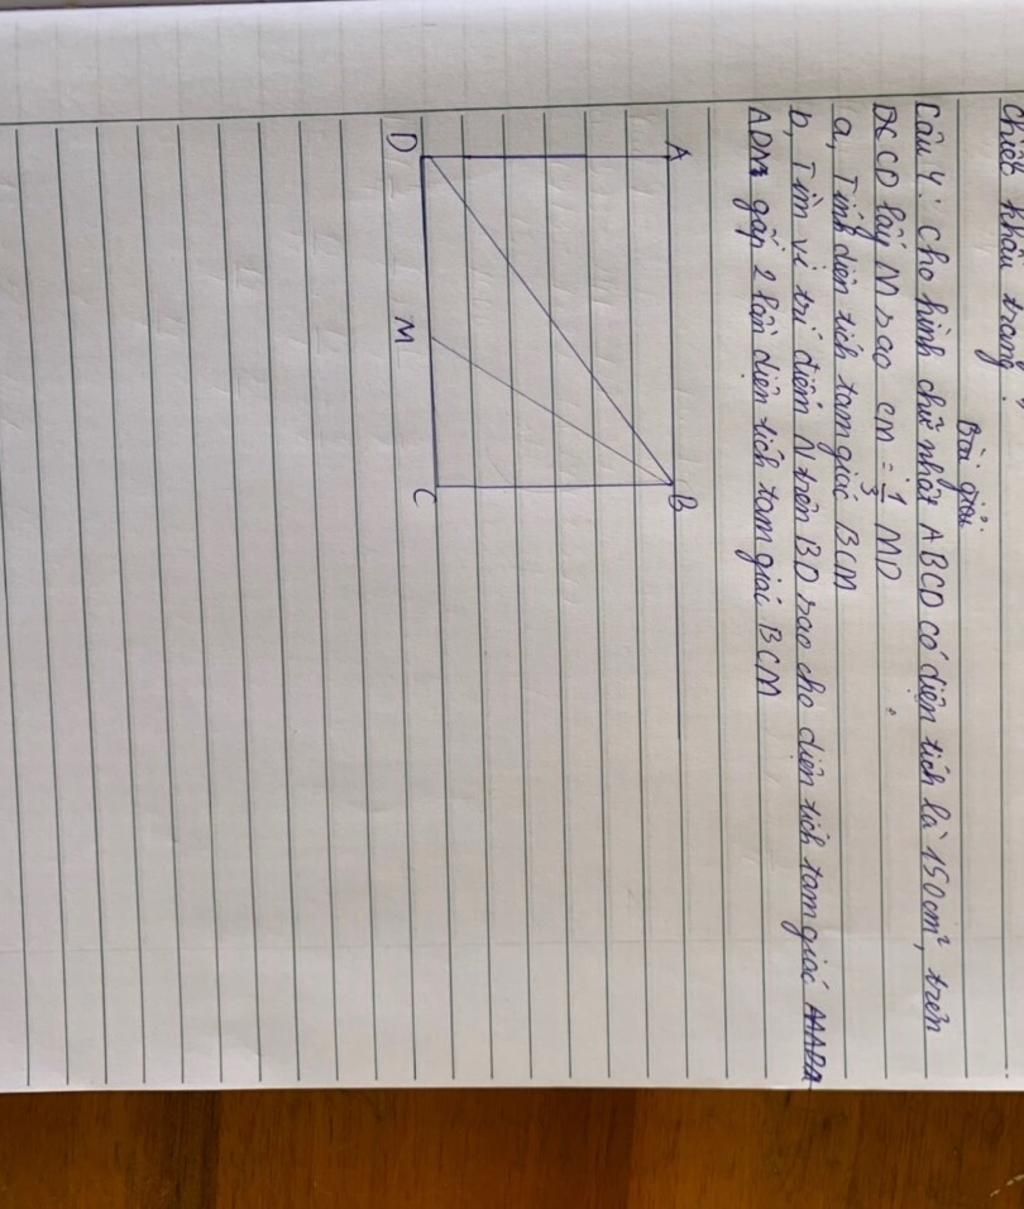 chiếc khẩu trang?
Bài giải
Câu 4: Cho hình chữ nhật ABCD có diện tích là 150cm², trên
CD lấy M sao CM = 1/3 MD
a, Tính diện tích tam giác BCM
b, Tìm vị trí điểm N trên BD sao cho diện tích tam giác
ADM gấp 2 lần diện tích tam giác BCM
A B
D M C